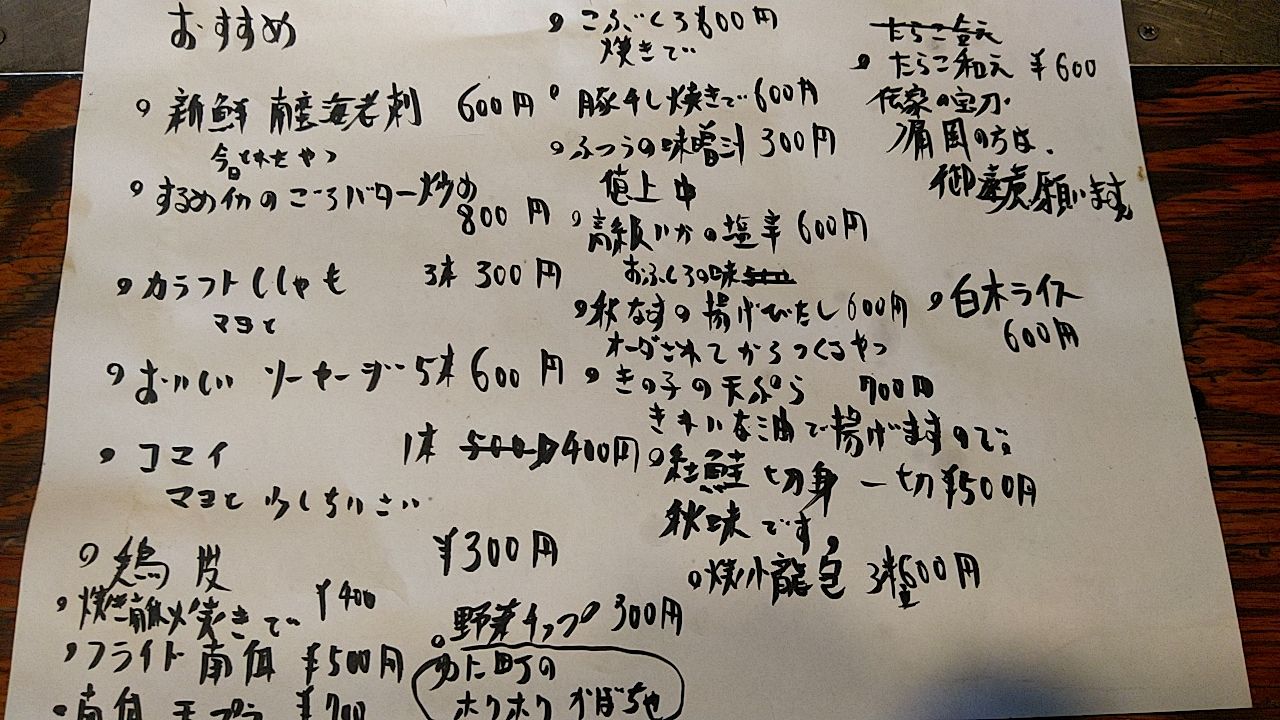 おすすめ
新鮮 南蛮海老刺 600円
今日とれたやつ
するめイカのごろバター炒め
800円
カラフトししゃも 3本 300円
マヨと
おいしい ソーセージ 5本 600円
コマイ 1本 500円 400円
マヨと 少しちいさい
鶏皮 ¥300円
焼き ¥400
フライド南瓜 ¥500円
南瓜天プラ ¥700
野菜チップ 300円
町の
ホクホク かぼちゃ
こぶくろ 600円
焼きで
豚 焼きで 600円
ふつうの味噌汁 300円
値上中
高級いかの塩辛 600円
おふくろの味
秋なすの揚げびたし 600円
オーダされてからつくるやつ
きの子の天ぷら 700円
きれいな油で揚げますので
紅鮭 切身 一切 ¥500円
秋味です。
焼小龍包 3 600円
たらこ和え
たらこ和え ¥600
伝家の宝刀
痛風の方は、
御遠慮願います
白木ライス
600円